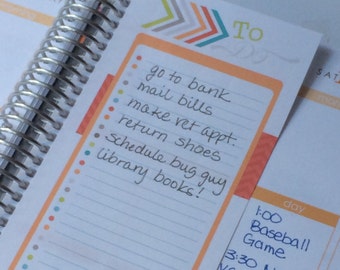 To
go to bank
mail bills
make vet appt.
return shoes
Schedule bug guy
library books!
day
1:00
Baseball
Game
3:30